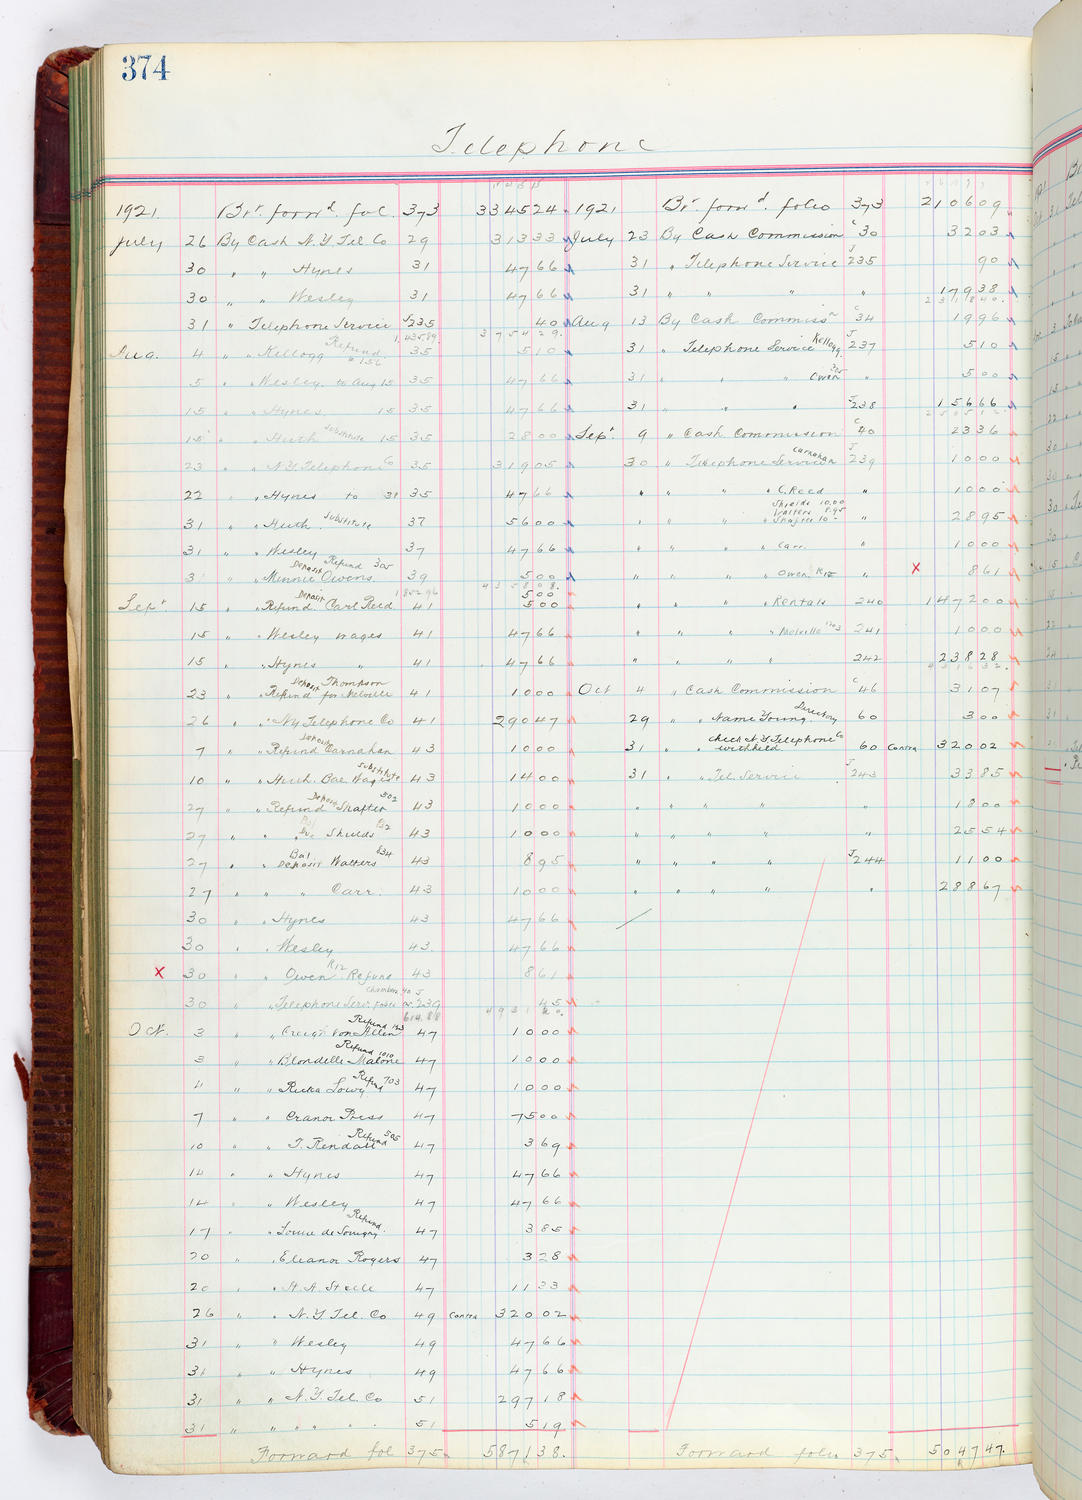 374
Telephone
1921. Brt. forwd. fol. 373 334524
July 26 By Cash N.Y. Tel Co 29 31333
30 " " Hynes 31 4766
30 " " Wesley 31 4766
31 " Telephone Service J235 40
375429.
Aug. 4 " " Kellogg Refund 35 510
5 " " Wesley to Aug 15 35 4766
15 " " Hynes 15 35 4766
15 " " Huth Substitute 15 35 2800
23 " " N.Y. Telephone Co 35 31905
22 " " Hynes to 31 35 4766
31 " " Huth Substitute 37 5600
31 " " Wesley 37 4766
31 " " Minnie Owens Deposit Refund 305 39 500
435808.
Sept 15 " " Refund Deposit Carl Reed 41 500
15 " " Wesley wages 41 4766
15 " " Hynes " 41 4766
23 " " Refund Deposit Thompson for Melville 41 1000
26 " " N.Y Telephone Co 41 29047
7 " " Refund Deposit Carnahan 43 1000
10 " " Huth Bal Wages Substitute 43 1400
27 " " Refund Deposit Shafter 502 43 1000
27 " " Shields 43 1000
27 " " Bal Deposit Walters 834 43 895
27 " " " Carr. 43 1000
30 " " Hynes 43 4766
30 " " Wesley 43. 4766
x 30 " " Owen R12 Refund 43 861
30 " " Telephone Serv. 239 45
Oct. 3 " " Creighton Allen Refund 47 1000
3 " " Blondelle Malone Refund 1010 47 1000
4 " " Ricka Lowy Refund 703 47 1000
7 " " Cranor Press 47 7500
10 " " T. Rendall Refund 505 47 369
14 " " Hynes 47 4766
14 " " Wesley 47 4766
17 " " Refund 47 385
20 " " Eleanor Rogers 47 328
20 " " H.A. Steele 47 1133
26 " " N.Y. Tel. Co 49 Contra 32002
31 " " Wesley 49 4766
31 " " Hynes 49 4766
31 " " N.Y. Tel. Co 51 29718
31 " " " " " 51 519
Forward fol 375. 587138.
1921 Brt. forwd. folio 373 210609
July 23 By Cash Commission C30 3203
31 " Telephone Service J235 90
31 " " " " 17938
231840.
Aug 13 By Cash Commissn C34 1996
31 " Telephone Service Kellogg J237 510
31 " " " Owen 305 " 500
31 " " " J238 15666
Sept 9 " Cash Commission C40 2336
30 " Telephone Service Carnahan J239 1000
" " " " C. Reed " 1000
" " " " Shields 10.00 Walters 8.95 Shafter 10- " 2895
" " " " Carr. " 1000
" " " " Owen R12 " x 861
" " " " Rentals 240 147200
" " " " Melville 241 1000
" " " " 242 23828
Oct 4 " Cash Commission C46 3107
29 " " Name Young Directory 60 300
31 " " Check N.Y Telephone Co withheld 60 Contra 32002
31 " " Tel. Service J243 3385
" " " " " 1800
" " " " " 2554
" " " " J244 1100
" " " " " 28867
Forward folio 375. 504747.